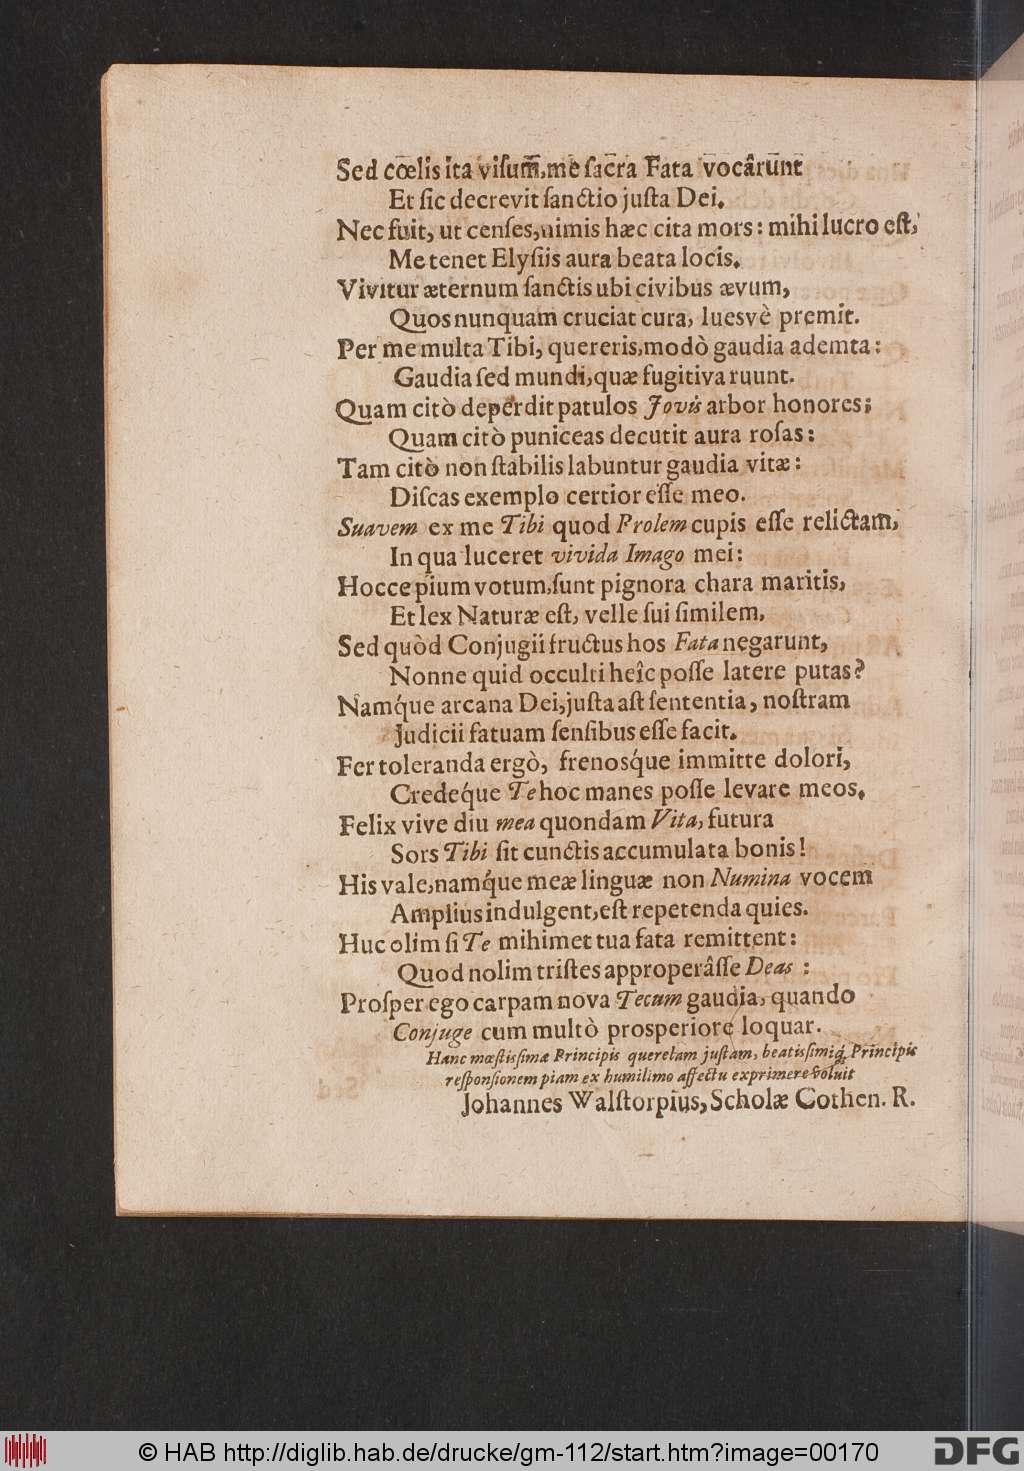 Sed cœlis ita viſum, me ſacra Fata vocârunt
Et ſic decrevit ſanctio juſta Dei.
Nec fuit, ut cenſes, nimis hæc cita mors: mihi lucro eſt,
Me tenet Elyſiis aura beata locis.
Vivitur æternum ſanctis ubi civibus ævum,
Quos nunquam cruciat cura, luesvè premit.
Per me multa Tibi, quereris, modò gaudia ademta:
Gaudia ſed mundi, quæ fugitiva ruunt.
Quam citò deperdit patulos Jovis arbor honores;
Quam citò puniceas decutit aura roſas:
Tam citò non ſtabilis labuntur gaudia vitæ:
Diſcas exemplo certior eſſe meo.
Suavem ex me Tibi quod Prolem cupis eſſe relictam,
In qua luceret vivida Imago mei:
Hocce pium votum, ſunt pignora chara maritis,
Et lex Naturæ eſt, velle ſui ſimilem,
Sed quòd Conjugii fructus hos Fata negarunt,
Nonne quid occulti heîc poſſe latere putas?
Namq́ue arcana Dei, juſta aſt ſententia, noſtram
Judicii fatuam ſenſibus eſſe facit.
Fer toleranda ergò, frenosq́ue immitte dolori,
Credeq́ue Te hoc manes poſſe levare meos.
Felix vive diu mea quondam Vita, futura
Sors Tibi ſit cunctis accumulata bonis!
His vale, namq́ue meæ linguæ non Numina vocem
Amplius indulgent, eſt repetenda quies.
Huc olim ſi Te mihimet tua fata remittent:
Quod nolim triſtes approperâſſe Deas :
Proſper ego carpam nova Tecum gaudia, quando
Conjuge cum multò proſperiore loquar.
Hanc mœſtiſſimæ Principis querelam juſtam, beatiſſimiq́; Principis
reſponſionem piam ex humilimo affectu exprimere voluit
Johannes Walſtorpius, Scholæ Cothen. R.
© HAB http://diglib.hab.de/drucke/gm-112/start.htm?image=00170
DFG